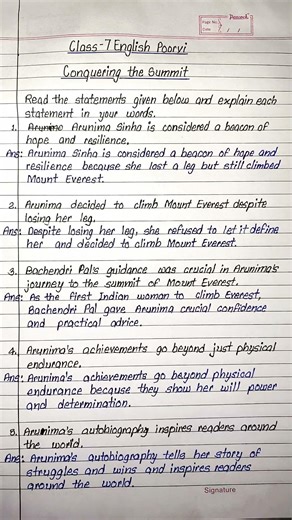 Page No.
Date
Class-7 English Poorvi
Conquering the Summit
Read the statements given below and explain each
statement in your words.
1. Arunima Arunima Sinha is considered a beacon of
hope and resilience.
Ans: Arunima Sinha is considered a beacon of hope and
resilience because she lost a leg but still climbed
Mount Everest.
2. Arunima decided to climb Mount Everest despite
losing her leg.
Ans: Despite losing her leg, she refused to let it define
her and decided to climb Mount Everest.
3. Bachendri Pal's guidance was crucial in Arunima's
journey to the summit of Mount Everest.
Ans: As the First Indian woman to climb Everest,
Bachendri Pal gave Arunima crucial confidence
and practical advice.
4. Arunima's achievements go beyond just physical
endurance.
Ans: Arunima's achievements go beyond physical
endurance because they show her will power
and determination.
5. Arunima's autobiography inspires readers around
the world.
Ans: Arunima's autobiography tells her story of
struggles and wins and inspires readers
around the world.
Signature